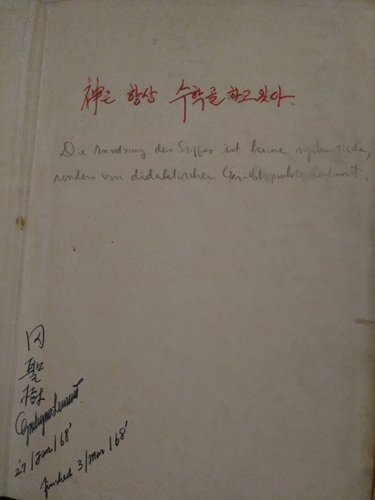 神은 항상 수학을 하고 있다.
Die Anordnung des Stoffes ist keine systematische,
sondern von didaktischen Gesichtspunkten
聖
27/Jan/68'
finished 3/Mar/68'